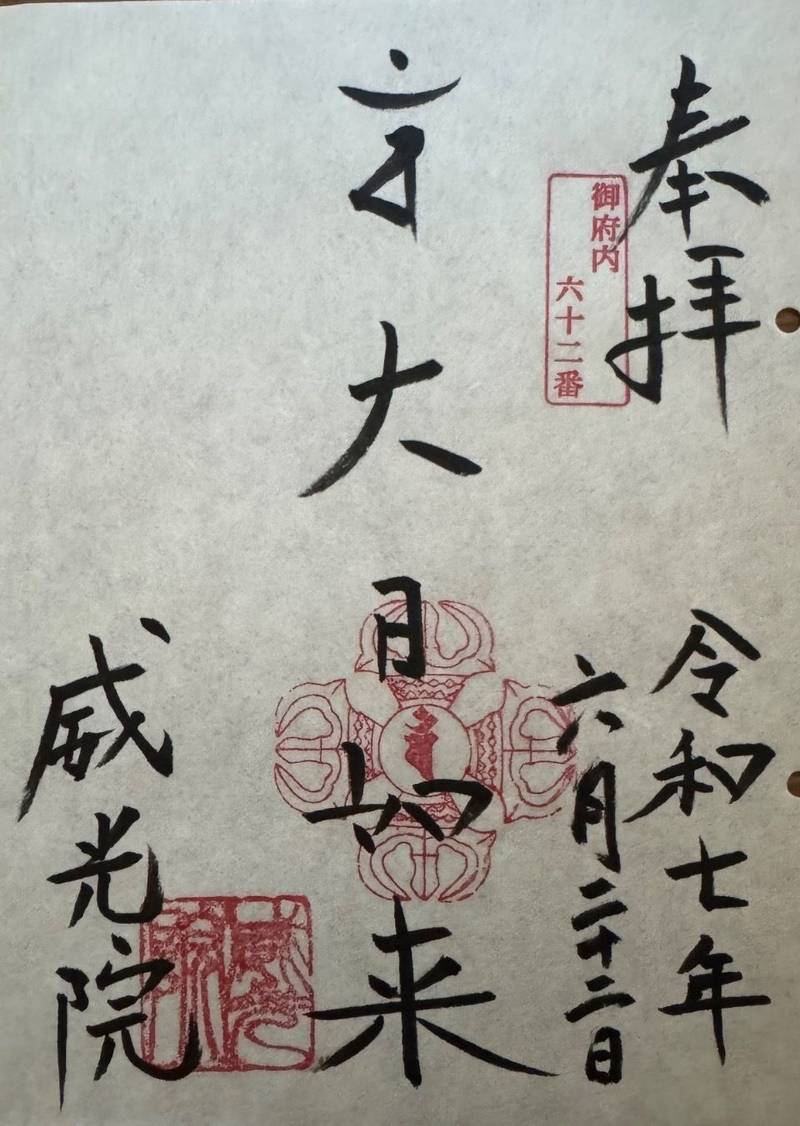 奉拝
御府内
六十二番
令和七年
六月二十二日
大日如来
威光院